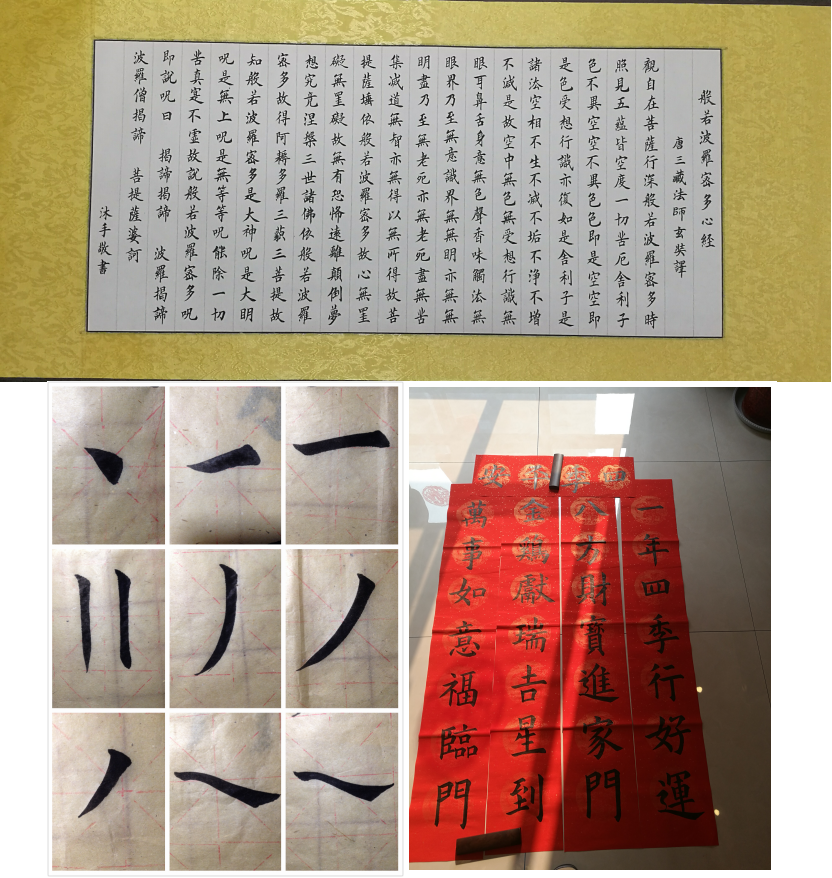 般若波羅密多心經
唐三藏法師玄奘譯
觀自在菩薩行深般若波羅密多時
照見五蘊皆空度一切苦厄舍利子
色不異空空不異色色即是空空即
是色受想行識亦復如是舍利子是
諸法空相不生不滅不垢不淨不增
不減是故空中無色無受想行識無
眼耳鼻舌身意無色聲香味觸法無
眼界乃至無意識界無無明亦無無
明盡乃至無老死亦無老死盡無苦
集滅道無智亦無得以無所得故菩
提薩埵依般若波羅密多故心無罣
礙無罣礙故無有恐怖遠離顛倒夢
想究竟涅槃三世諸佛依般若波羅
密多故得阿耨多羅三藐三菩提故
知般若波羅密多是大神呪是大明
呪是無上呪是無等等呪能除一切
苦真實不虛故說般若波羅密多呪
即說呪曰 揭諦揭諦 波羅揭諦
波羅僧揭諦 菩提薩婆訶
沐手敬書
四季平安
一年四季行好運
八方財寶進家門
金鷄獻瑞吉星到
萬事如意福臨門